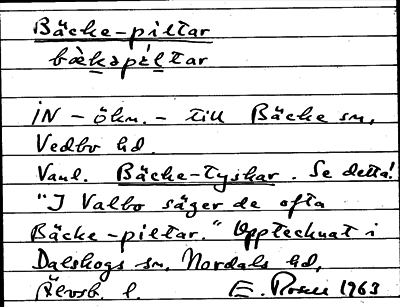 Bäcke-piltar
bæ̀kapìltar
IN - ökn. - till Bäcke sn,
Vedbo hd.
Vanl. Bäcke-Tyskar. Se detta!
"I Valbo säger de ofta
Bäcke-piltar." Upptecknat i
Dalskogs sn. Nordals hd,
Älvsb. l. E. Rosell 1963